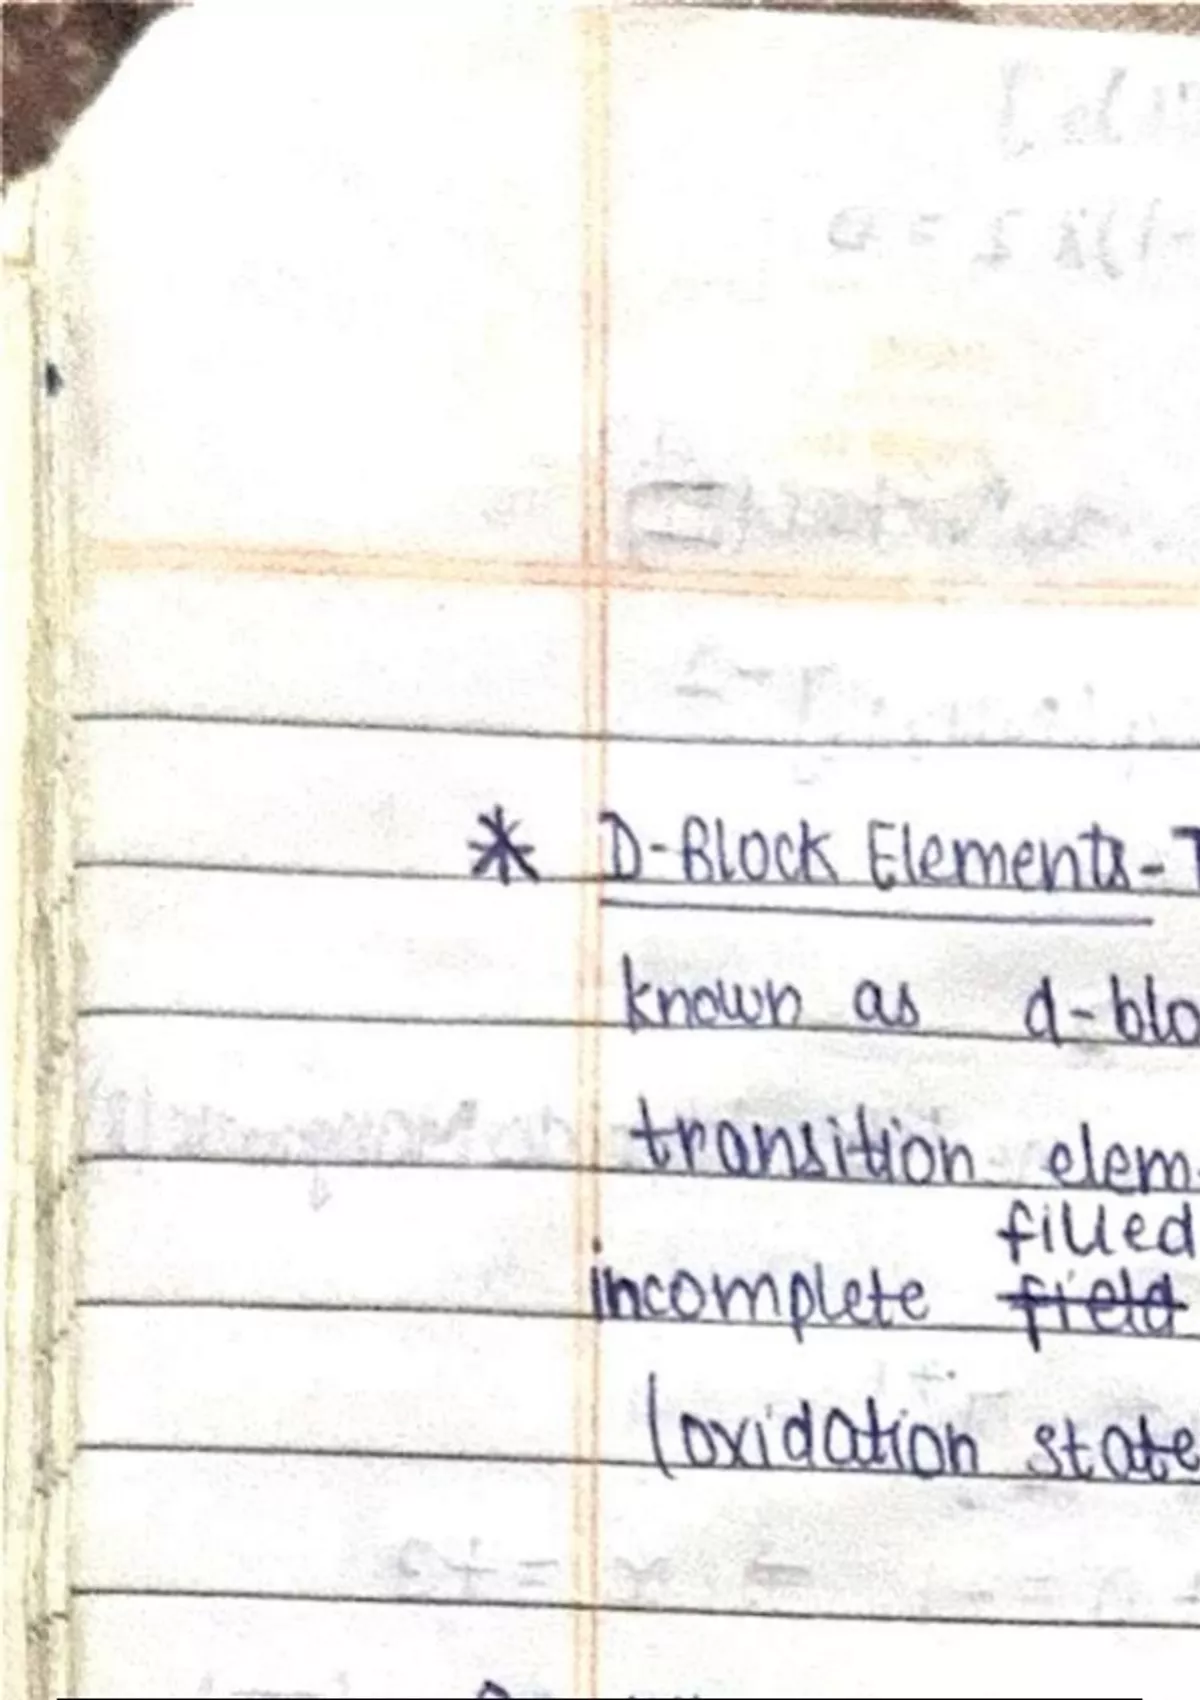 * D-Block Elements - T
known as d-blo
transition elem
filled
incomplete ~~field~~
(oxidation state